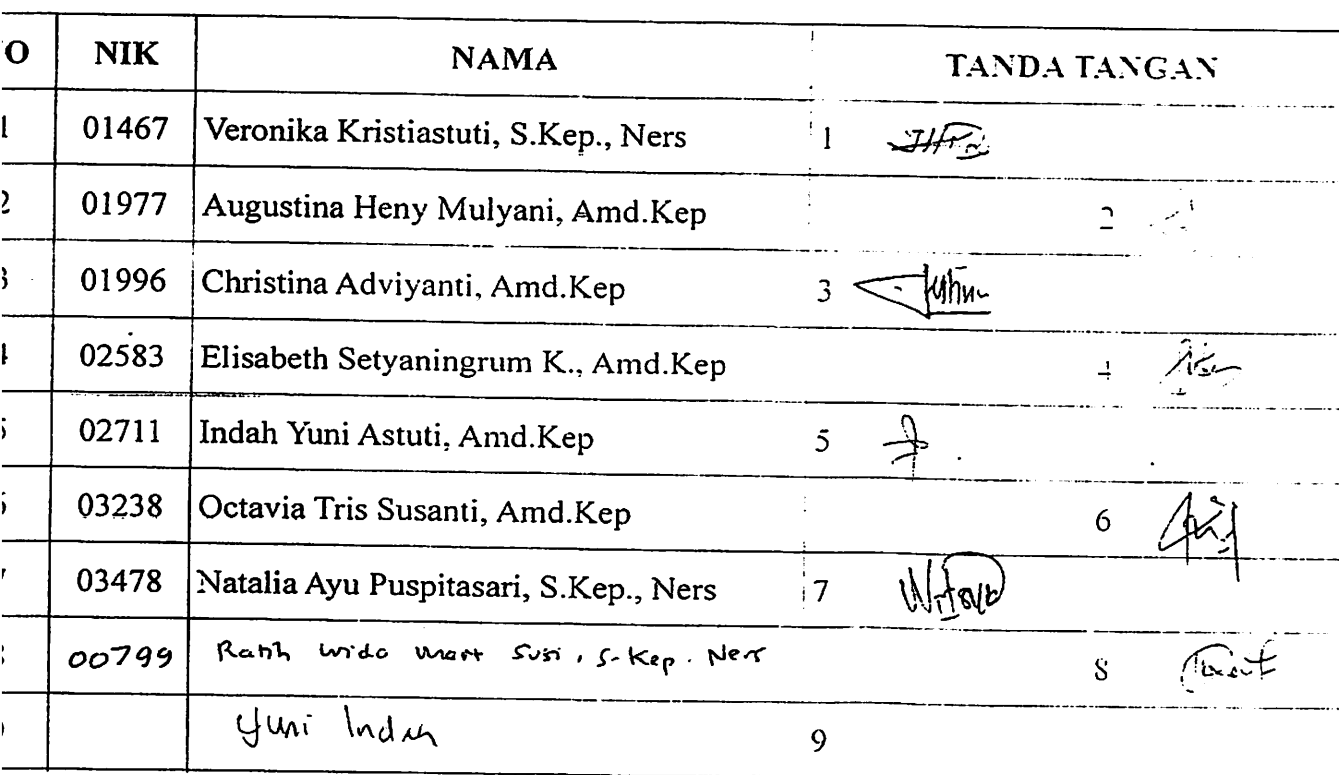 O NIK NAMA TANDA TANGAN
1 01467 Veronika Kristiastuti, S.Kep., Ners 1
2 01977 Augustina Heny Mulyani, Amd.Kep 2
3 01996 Christina Adviyanti, Amd.Kep 3
4 02583 Elisabeth Setyaningrum K., Amd.Kep 4
5 02711 Indah Yuni Astuti, Amd.Kep 5
6 03238 Octavia Tris Susanti, Amd.Kep 6
7 03478 Natalia Ayu Puspitasari, S.Kep., Ners 7
00799 Ratih Wido Susi, S.Kep. Ners 8
Yuni Indah 9